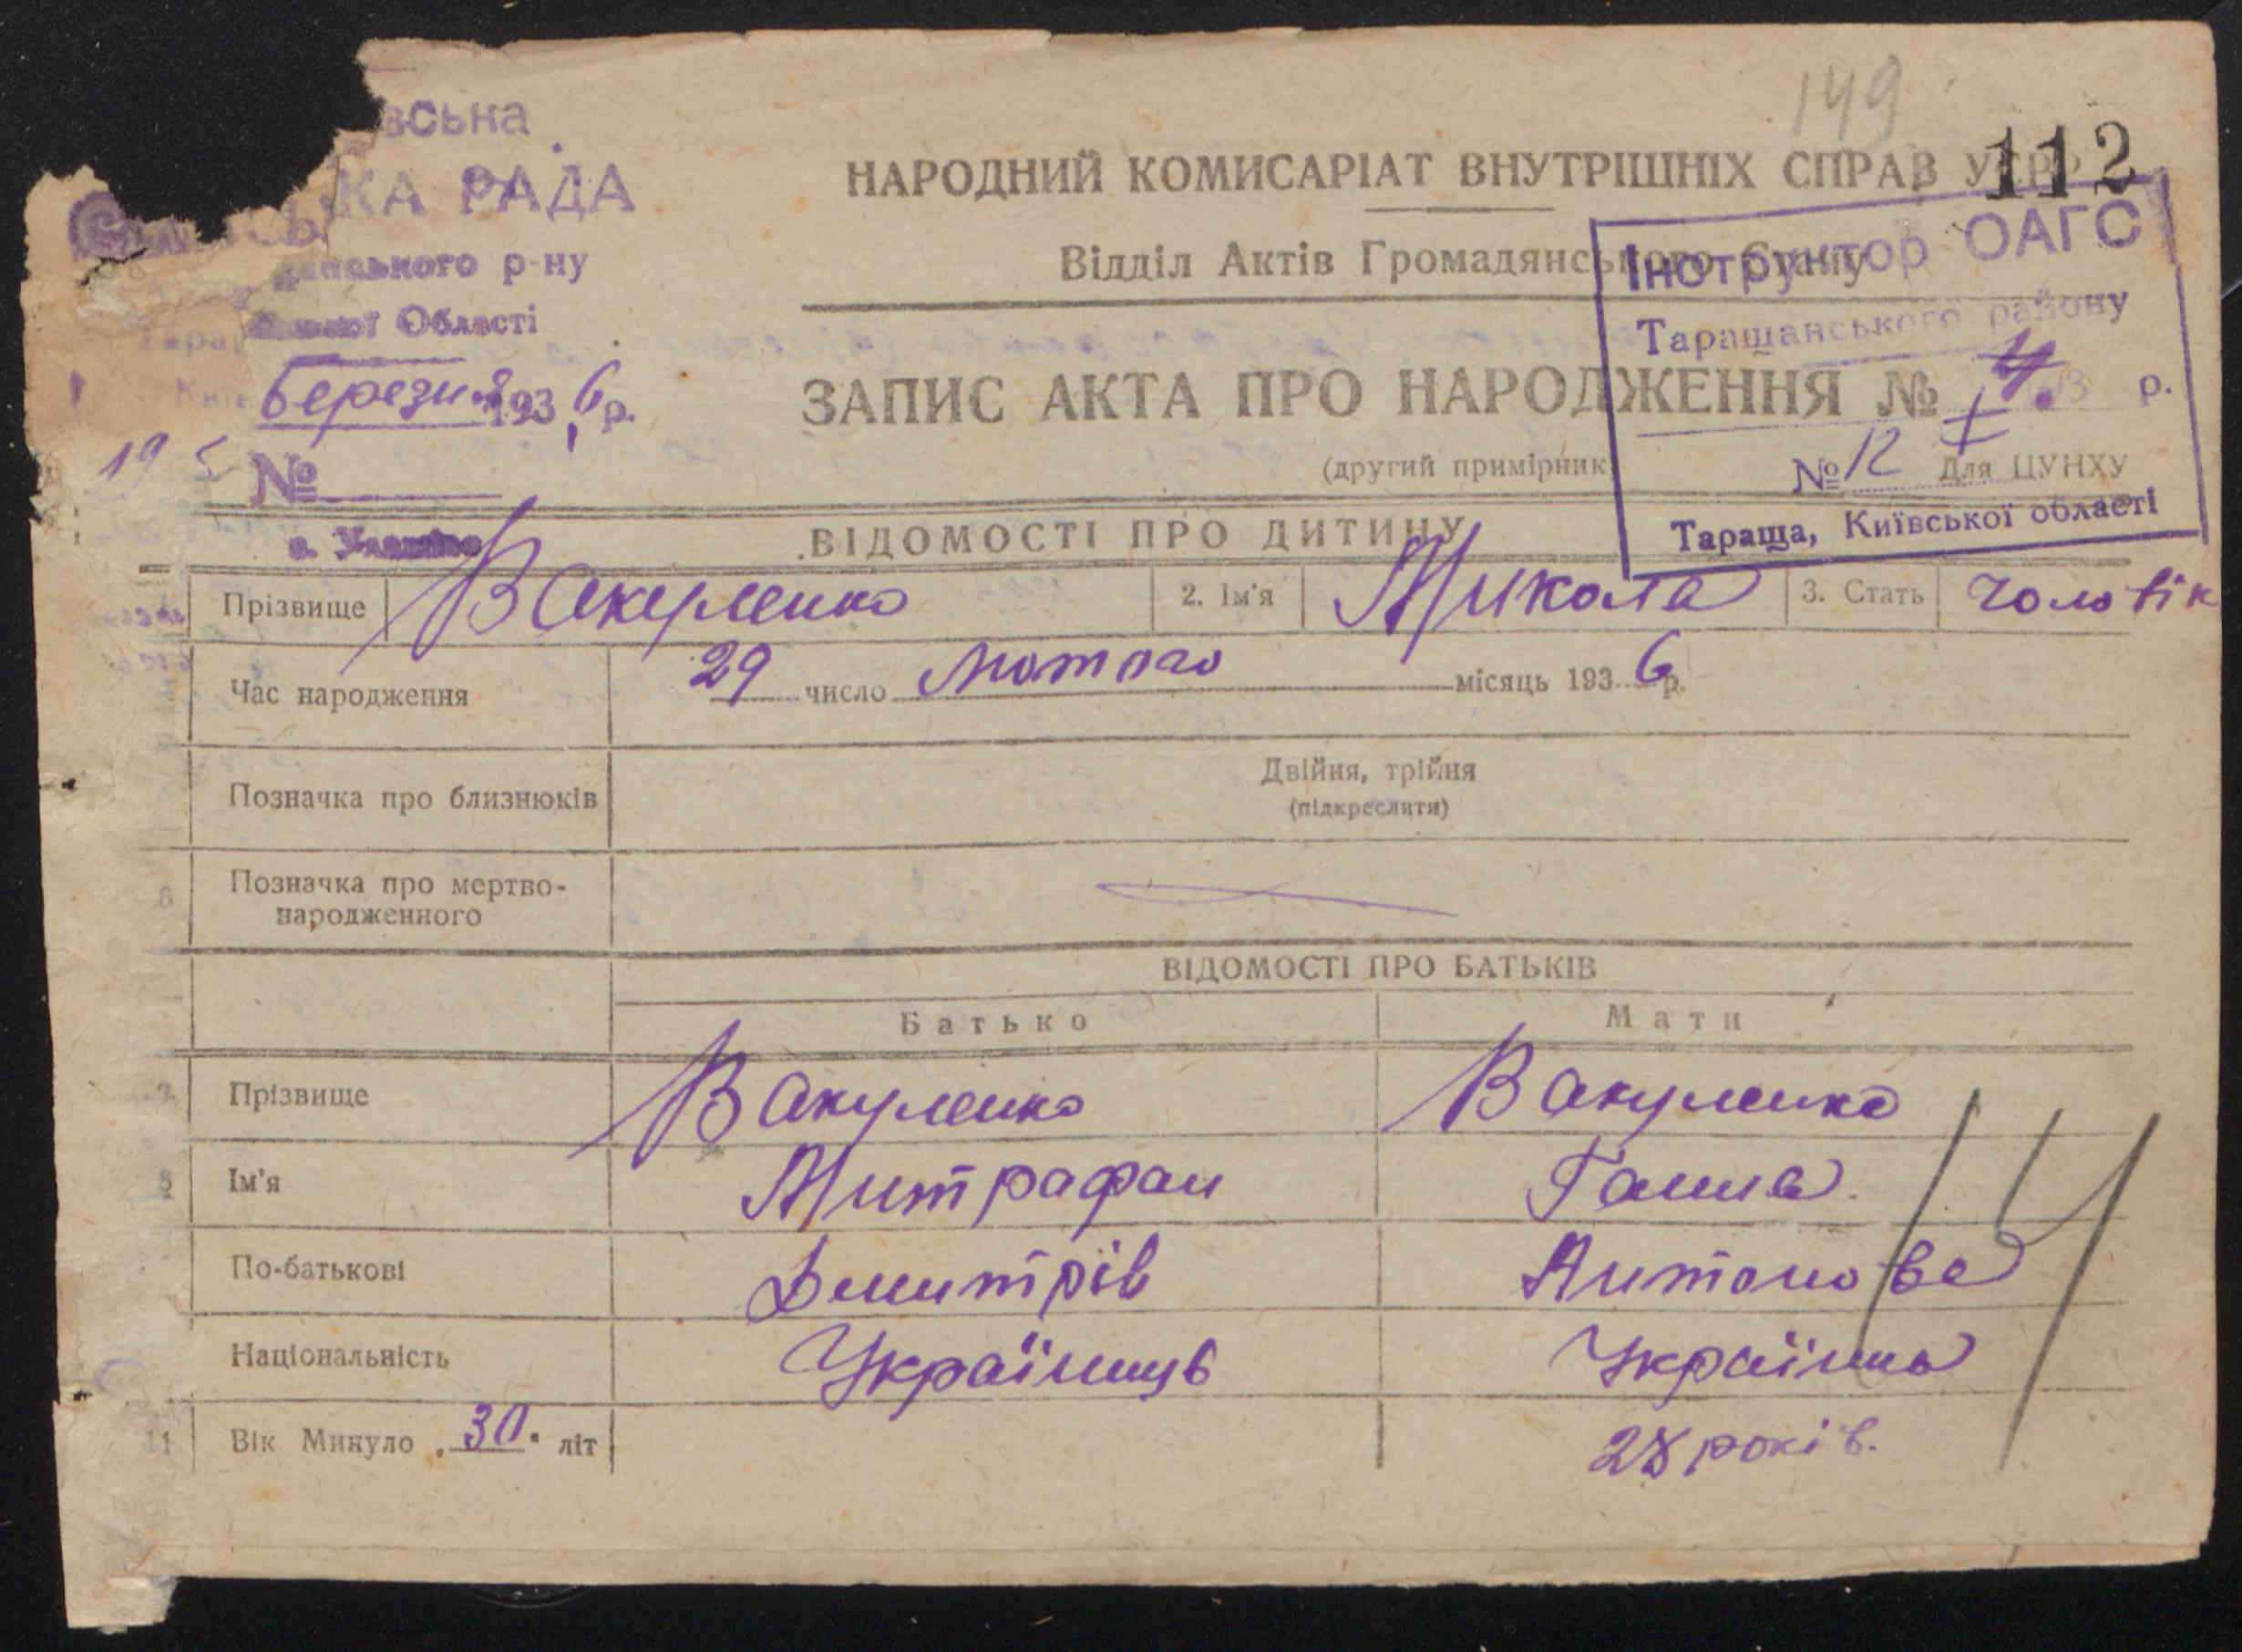 149
112
вська
КА РАДА
ського р-ну
Області
Березня 1936 р.
19 5
№
НАРОДНИЙ КОМИСАРІАТ ВНУТРІШНІХ СПРАВ УСРР
Відділ Актів Громадянського Стану
ЗАПИС АКТА ПРО НАРОДЖЕННЯ № 4.
(другий примірник
Для ЦУНХУ
Інструктор ОАГС
Таращанського району
р.
№ 12
Тараща, Київської області
ВІДОМОСТІ ПРО ДИТИНУ
Прізвище Вакуленко 2. Ім'я Микола 3. Стать чоловік
Час народження 29 число Лютого місяць 1936 р.
Позначка про близнюків Двійня, трійня
(підкреслити)
6 Позначка про мертво-
народженного
ВІДОМОСТІ ПРО БАТЬКІВ
Батько Мати
Прізвище Вакуленко Вакуленко
Ім'я Митрафан Ганна
По-батькові Дмитрів Антонова
Національність Українць Українка
11 Вік Минуло 30 літ 28 років.